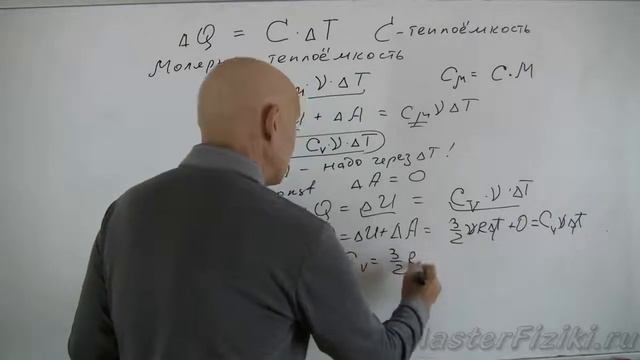 ΔQ = C·ΔT C - теплоёмкость
теплоёмкость
·ν·ΔT Cм = C·M
+ ΔA = Cм ν ΔT
Cv ν·ΔT
- надо через ΔT!
const ΔA = 0
Q = ΔU = Cv·ν·ΔT
= ΔU + ΔA = 3/2 νRΔT + 0 = Cv νΔT
Cv = 3/2 R
MasterFiziki.ru